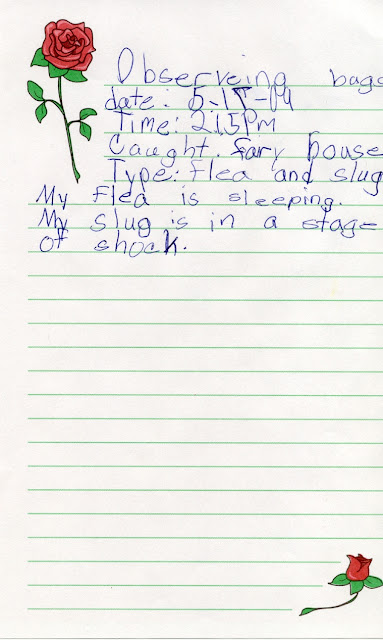 Observeing bugs
date: 5-15-04
Time: 2:15pm
Caught: fary house
Type: flea and slug
My flea is sleeping.
My slug is in a stage
of shock.